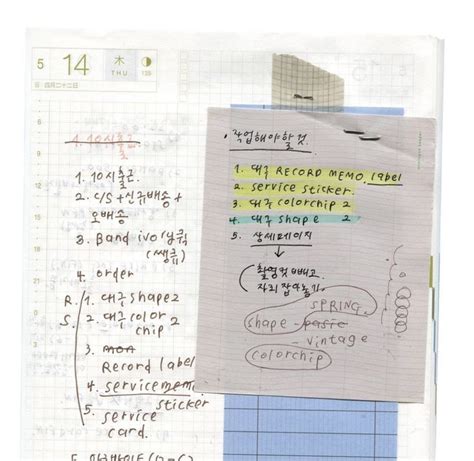 5 14 木
THU
1. 10시출근
1. 10시출근
2. C/S + 신규배송 +
오배송
3. Band ivo
4. order
R. 1. 대구 shape 2
S. 2. 대구 color
chip 2
3. MOA
Record label
4. service memo
sticker
5. service
card.
• 작업해야할것.
1. 대구 RECORD MEMO label
2. service sticker.
3. 대구 colorchip 2
4. 대구 shape 2
5. 상세페이지
↓
촬영컷 빼고
자리 잡아놓기.
SPRING.
shape - basic
- vintage
colorchip